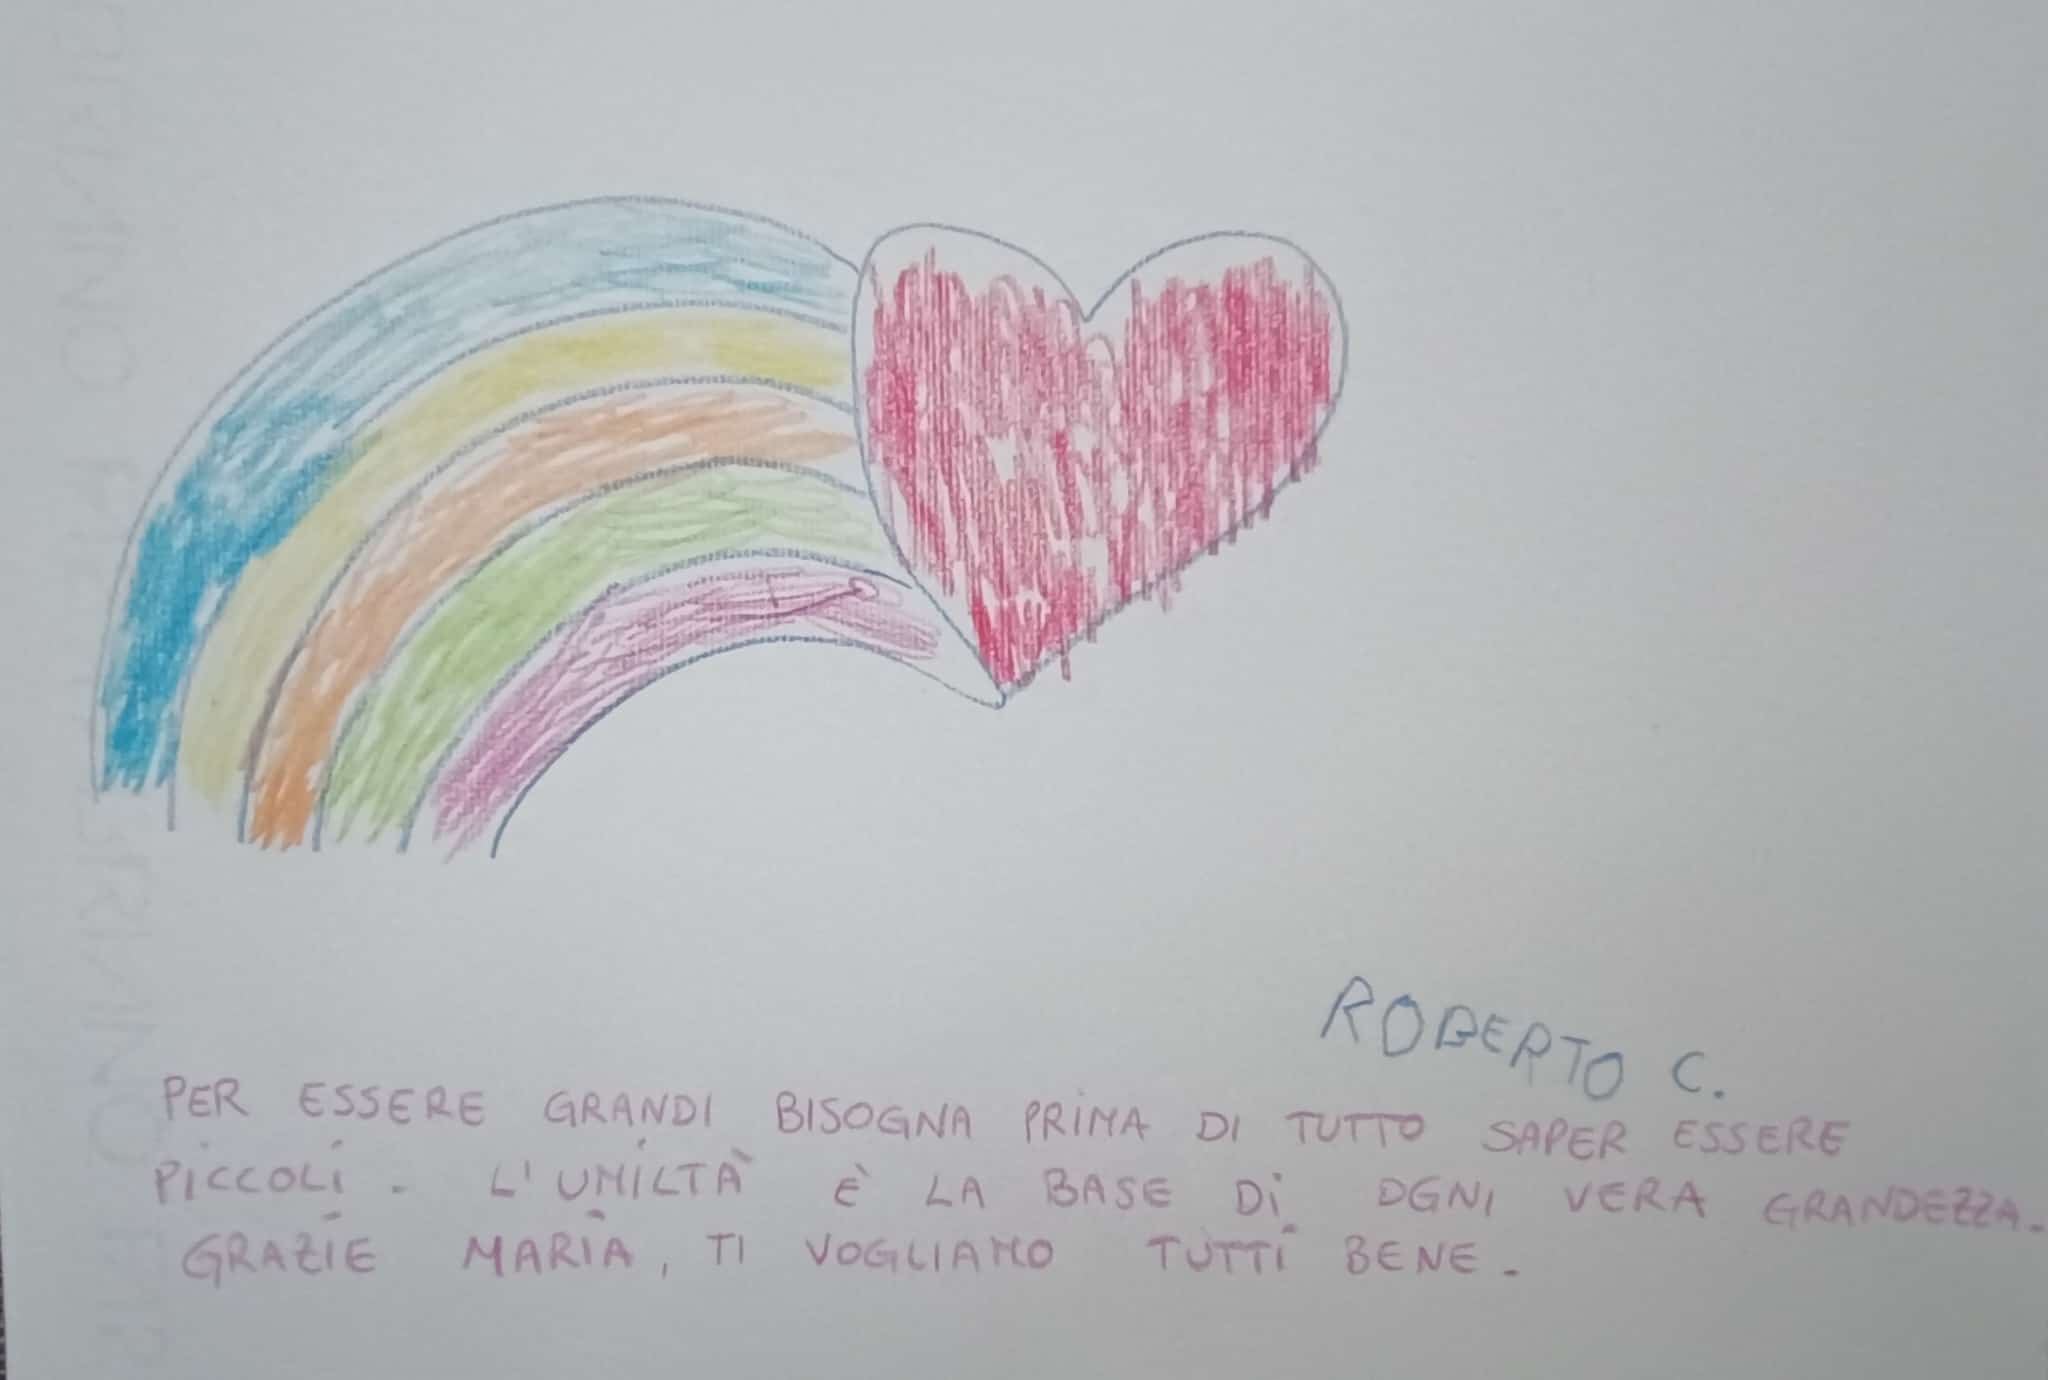 ROBERTO C.
PER ESSERE GRANDI BISOGNA PRIMA DI TUTTO SAPER ESSERE
PICCOLI. L'UMILTÀ È LA BASE DI OGNI VERA GRANDEZZA.
GRAZIE MARIA, TI VOGLIAMO TUTTI BENE.